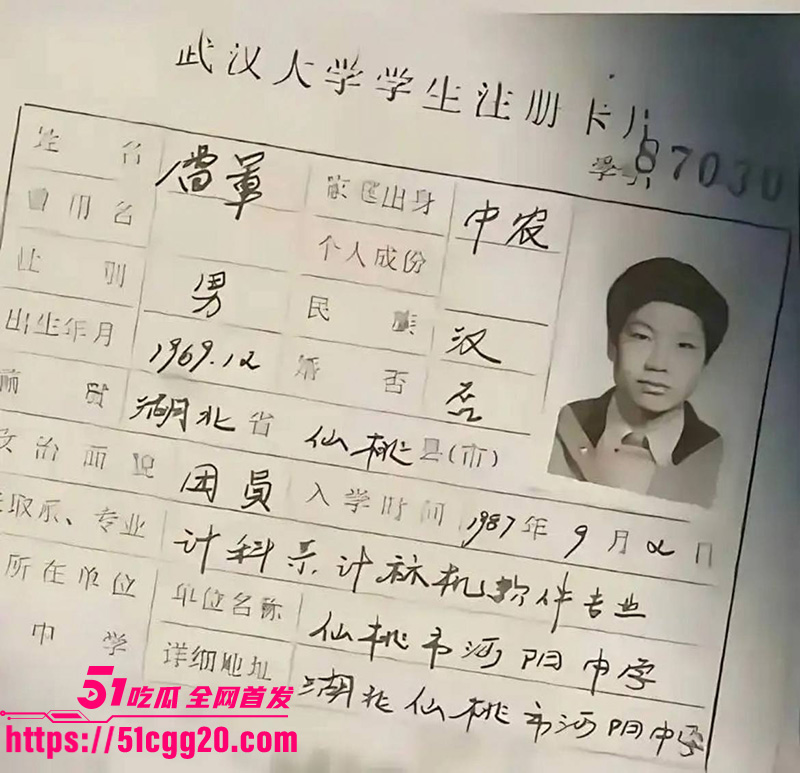 武汉大学学生注册卡片
学号 87030
姓名 雷军 家庭出身 中农
曾用名 个人成份
性别 男 民族 汉
出生年月 1969.12 婚否 否
湖北省 仙桃县(市)
政治面貌 团员 入学时间 1987年9月2日
录取系、专业 计科系计标机软件专业
所在单位 单位名称 仙桃市沔阳中学
中学 详细地址 湖北仙桃市沔阳中学
51吃瓜 全网首发
https://51cgg20.com